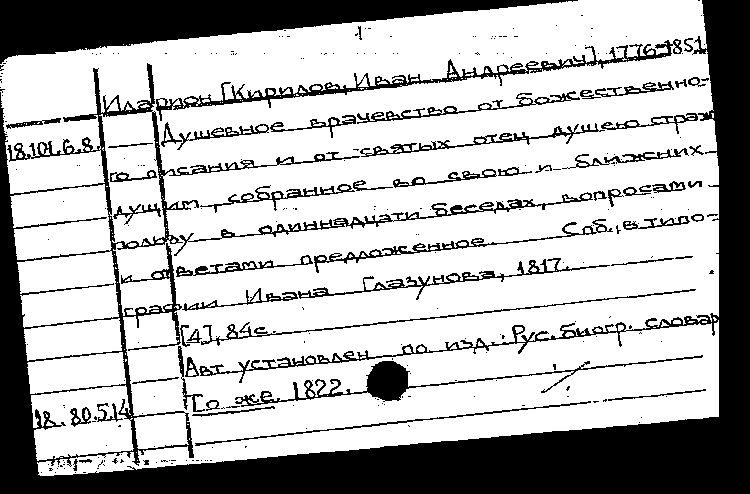 Иларион [Кирилов, Иван Андреевич], 1776-1851
18.101.6.8. Душевное врачевство от божественно-
го писания и от святых отец душею страж
дущим, собранное во свою и ближних
пользу в одиннадцати беседах, вопросами
и ответами предложенное. Спб., в типо=
графии Ивана Глазунова, 1817.
[4], 84с.
Авт. установлен по изд.: Рус. биогр. словар
18.80.5.14 То же. 1822.